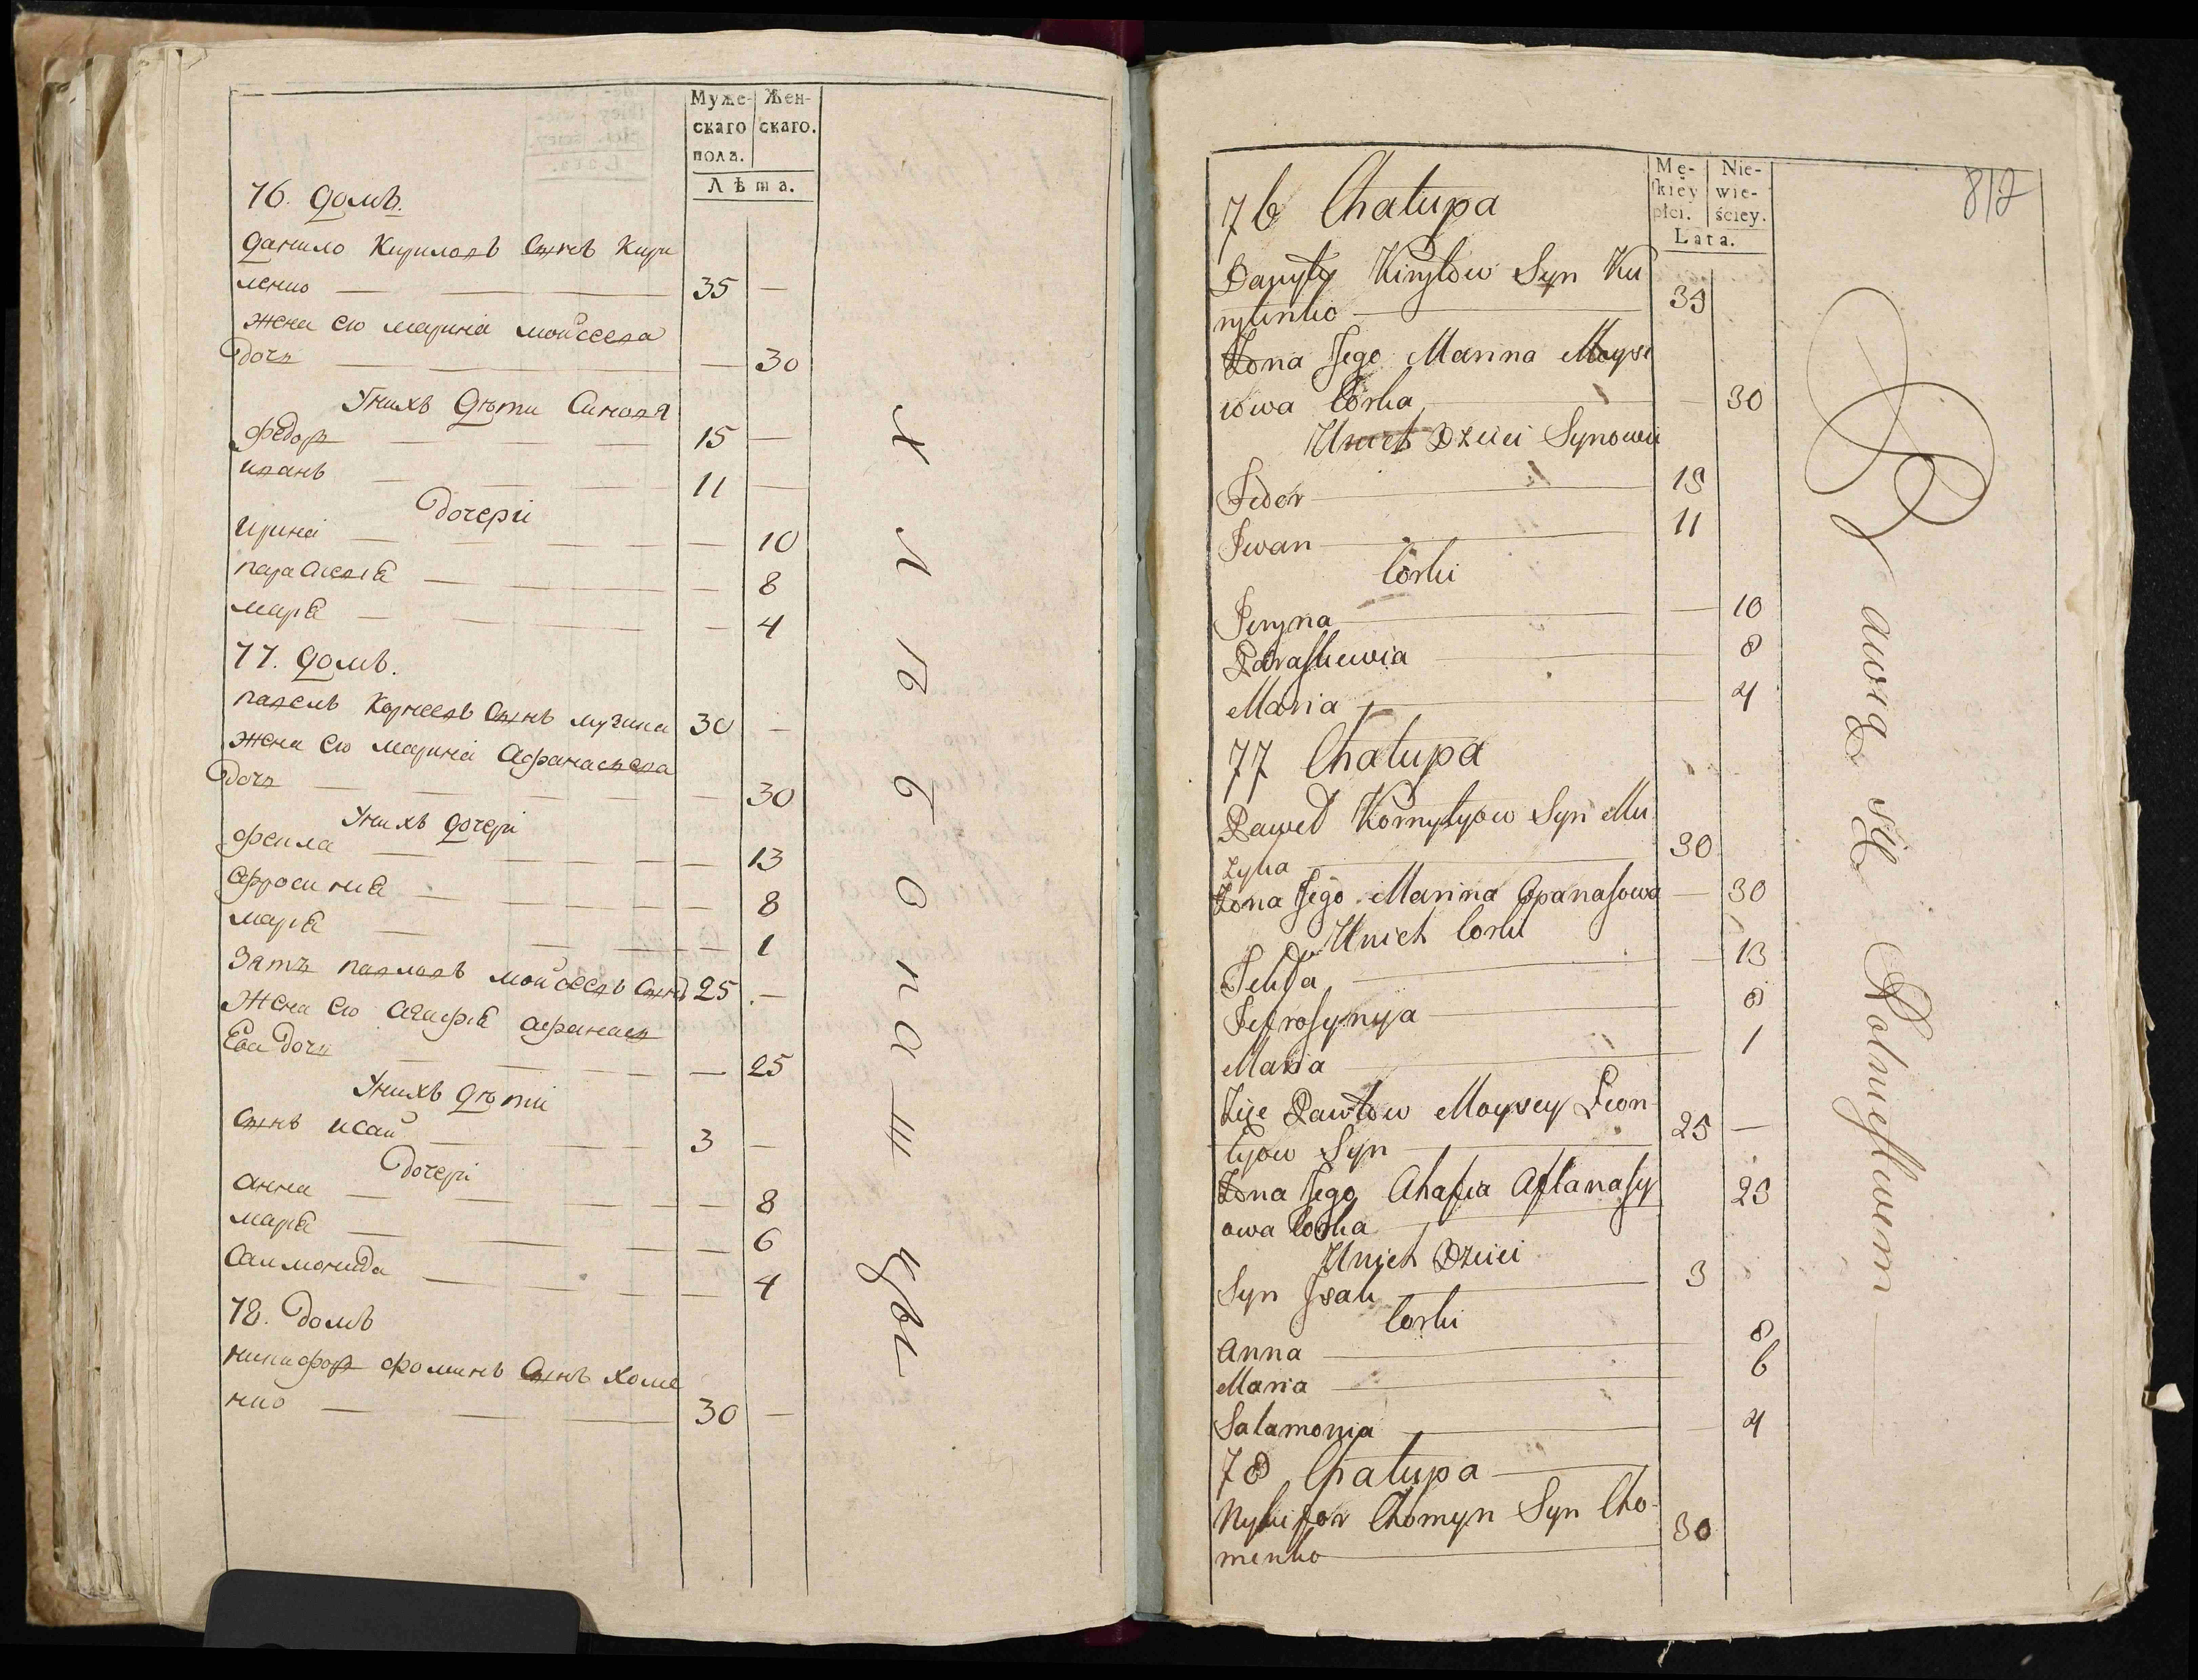 Муже-
скаго
полꙋ.
Жен-
скаго.
Лѣта.
76. домъ.
Данило Кириловъ Сынъ Кири
ленко 35 —
жена его марина мойсеева
дочь — 30
Унихъ Дѣти Синовя
Федоръ 15 —
иванъ 11 —
Дочери
ирина — 10
параскевiя — 8
марiя — 4
77. домъ.
павелъ Корнеевъ Сынъ мужика 30 —
жена его марина Афанасьева
дочь — 30
Унихъ дочери
фекла — 13
Афросиния — 8
марiя — 1
Зять павловъ мойсеевъ Сынъ 25 —
жена его Агафiя афанась
ева дочь — 25
Унихъ дѣти
Сынъ исай 3 —
Дочери
Анна — 8
марiя — 6
Саимонида — 4
78. домъ
никифоръ фоминъ Сынъ хоме
нко 30 —
Хлѣбопашцы
Mę-
skiey
płci.
Nie-
wie-
ściey.
Lata.
812
76 Chałupa
Danyło Kiryłow Syn Ku
rylenko 35
Żona Jego Marina Moyse
iowa Córka — 30
Unich Dzieci Synowie
Fedor 15
Iwan 11
Córki
Jeryna — 10
Paraskiewia 8
Maria 4
77 Chałupa
Paweł Kornyłyow Syn Mu
zyka 30
Żona Jego Marina Opanasowa — 30
Unich Corki
Fekla — 13
Jefrosynya 8
Maria 1
Zięć Pawłow Moysey Leon
tyow Syn 25 —
Żona Jego Ahafia Aftanasy
owa Corka 25
Unich Dzieci
Syn Isak 3
Corki
Anna 8
Maria 6
Salamonia 4
78 Chałupa
Nykifor Chomyn Syn Cho-
menko 30
Bawią się Rolnictwem